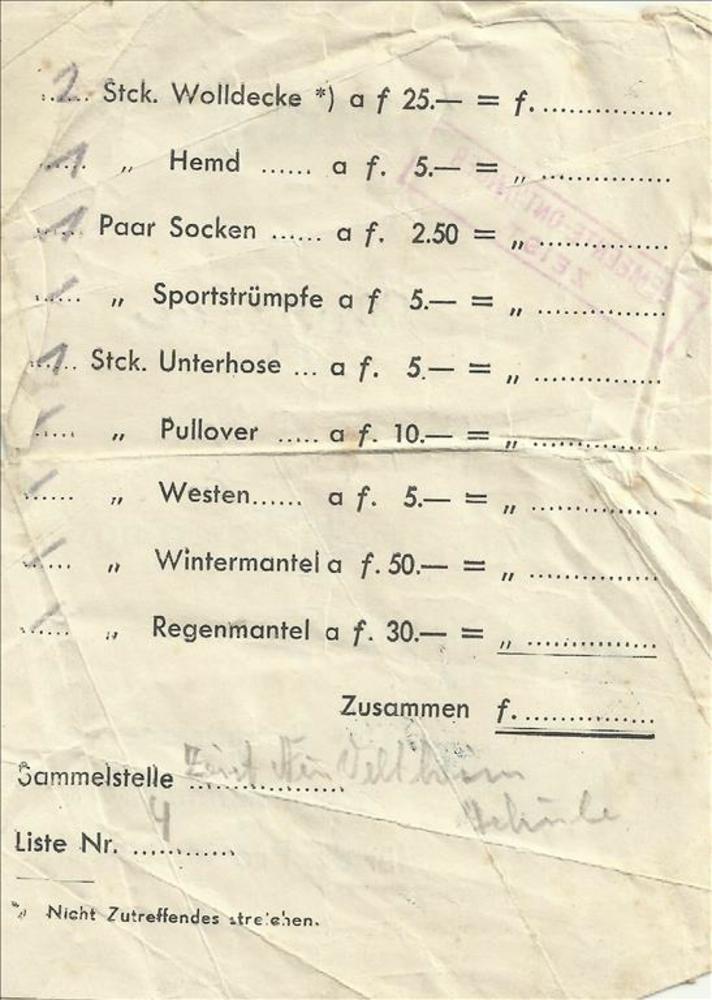 2 Stck. Wolldecke *) a f 25.— = f. ..............
1 „ Hemd ...... a f. 5.— = „ ..............
1 Paar Socken ...... a f. 2.50 = „ ..............
/ „ Sportstrümpfe a f 5.— = „ ..............
1 Stck. Unterhose ... a f. 5.— = „ ..............
/ „ Pullover ..... a f. 10.— = „ ..............
/ „ Westen...... a f. 5.— = „ ..............
/ „ Wintermantel a f. 50.— = „ ..............
/ „ Regenmantel a f. 30.— = „ ..............
Zusammen f. ..............
Sammelstelle Zeist
Schule
Liste Nr. 4
*) Nicht Zutreffendes streichen.
ZEIST